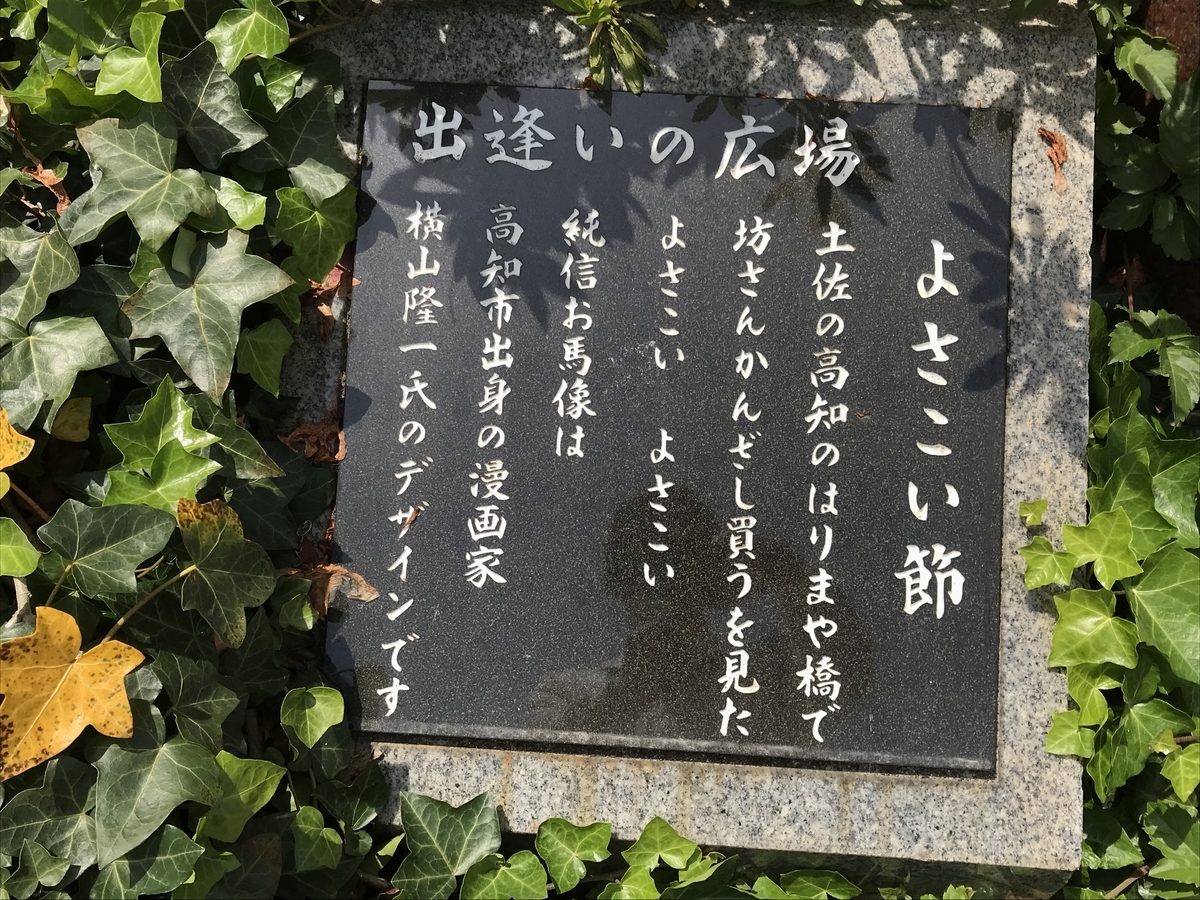 出逢いの広場
よさこい節
土佐の高知のはりまや橋で
坊さんかんざし買うを見た
よさこい よさこい
純信お馬像は
高知市出身の漫画家
横山隆一氏のデザインです